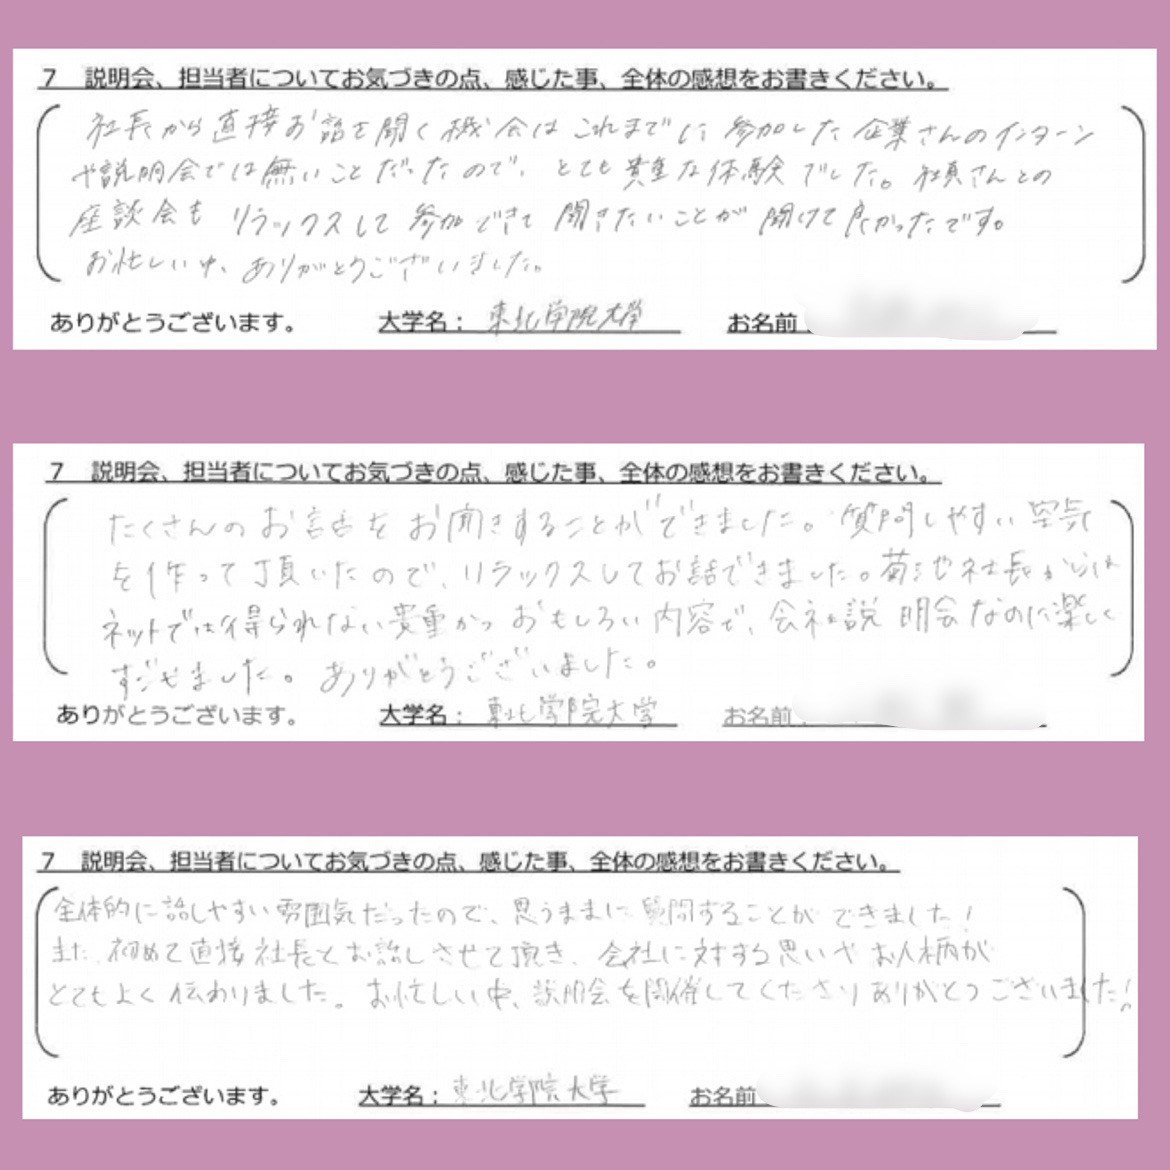 7　説明会、担当者についてお気づきの点、感じた事、全体の感想をお書きください。
社長から直接お話を聞く機会はこれまでに参加した企業さんのインターン
や説明会では無いことだったので、とても貴重な体験でした。社員さんとの
座談会もリラックスして参加できて聞きたいことが聞けて良かったです。
お忙しい中、ありがとうございました。
ありがとうございます。　大学名：東北学院大学　お名前
7　説明会、担当者についてお気づきの点、感じた事、全体の感想をお書きください。
たくさんのお話をお聞きすることができました。質問しやすい空気
を作って頂いたので、リラックスしてお話できました。菊池社長からは
ネットでは得られない貴重かつおもしろい内容で、会社説明会なのに楽しく
すごせました。ありがとうございました。
ありがとうございます。　大学名：東北学院大学　お名前
7　説明会、担当者についてお気づきの点、感じた事、全体の感想をお書きください。
全体的に話しやすい雰囲気だったので、思うままに質問することができました！
また、初めて直接社長とお話しさせて頂き、会社に対する思いやお人柄が
とてもよく伝わりました。お忙しい中、説明会を開催してくださりありがとうございました！
ありがとうございます。　大学名：東北学院大学　お名前